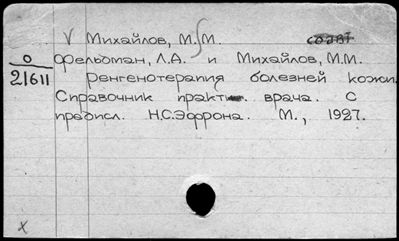 V Михайлов, М.М.
О
21611
Фельдман, Л.А. и Михайлов, М.М.
Ренгенотерапия болезней кожи.
Справочник практ. врача. С
предисл. Н.С.Эфрона. М., 1927.
X